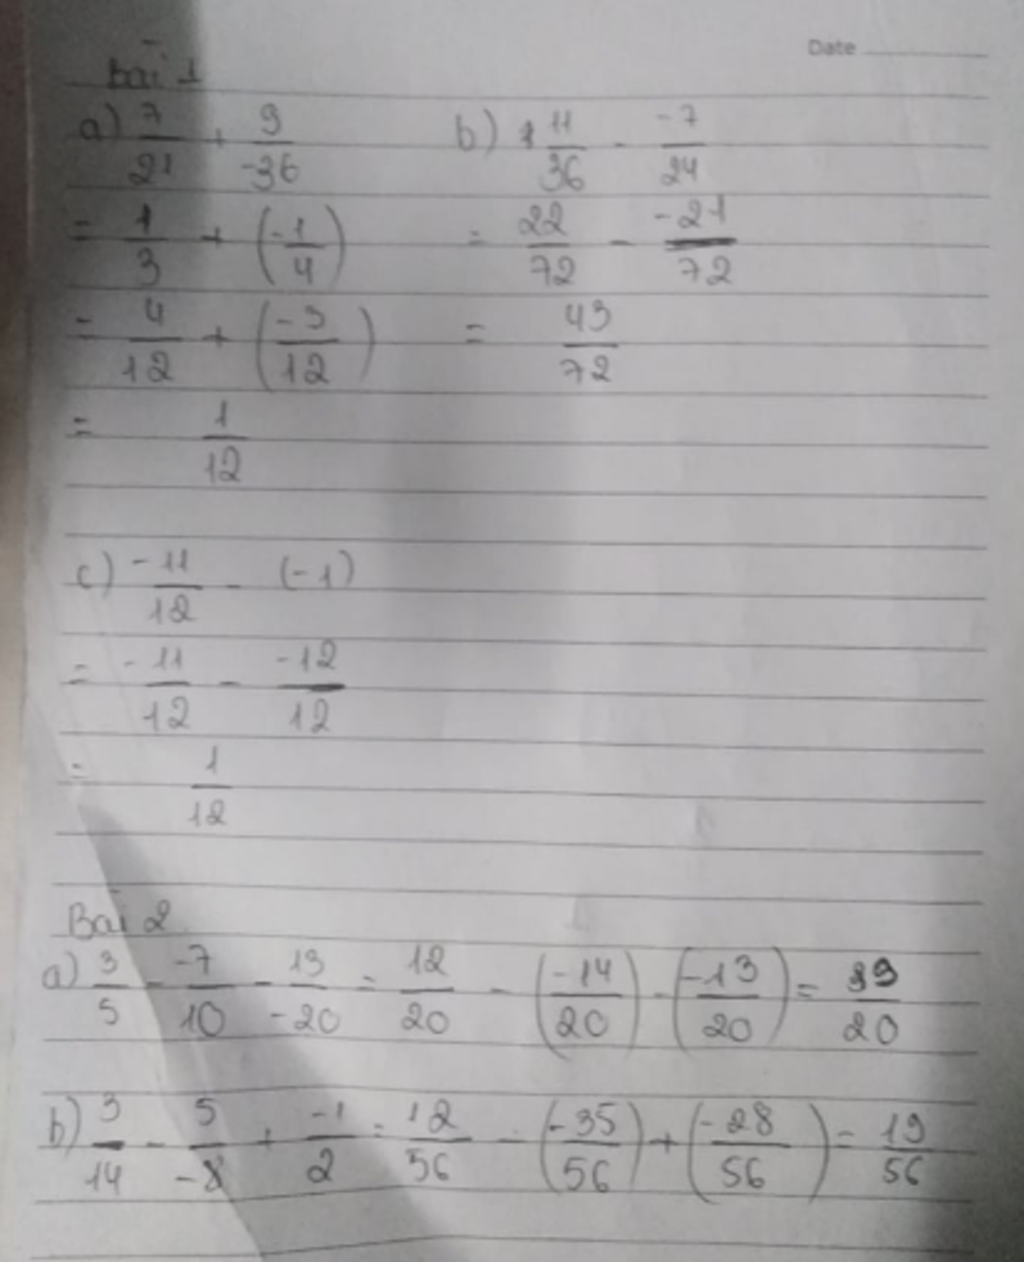 Date
Bài 1
a) 7/21 + 9/-36
= 1/3 + (-1/4)
= 4/12 + (-3/12)
= 1/12
b) 11/36 - -7/24
= 22/72 - -21/72
= 43/72
c) -11/12 - (-1)
= -11/12 - -12/12
= 1/12
Bài 2
a) 3/5 - -7/10 - 13/-20 = 12/20 - (-14/20) - (-13/20) = 39/20
b) 3/14 - 5/-8 + -1/2 = 12/56 - (-35/56) + (-28/56) = 19/56